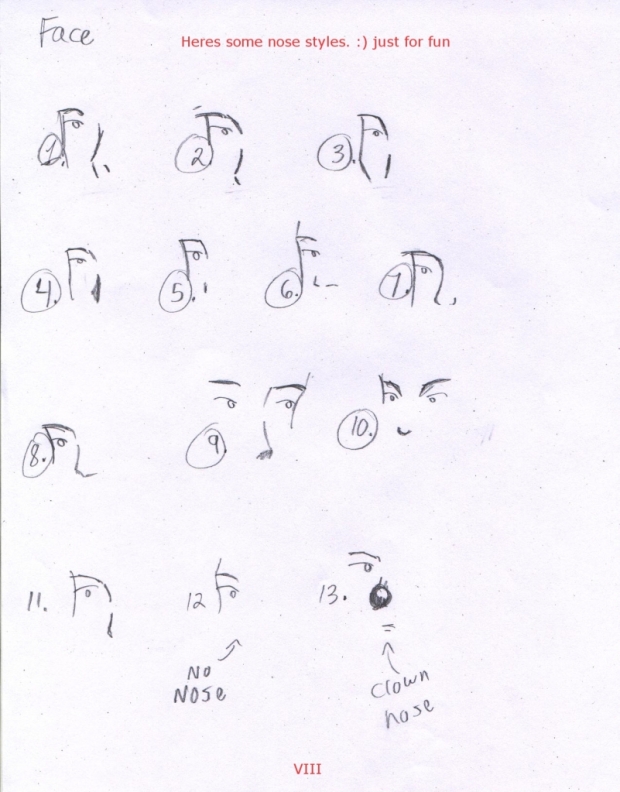 Face
Heres some nose styles. :) just for fun
1. 2 3.
4. 5. 6. 7.
8. 9 10.
11. 12 13.
NO
NOSe
Clown
nose
VIII